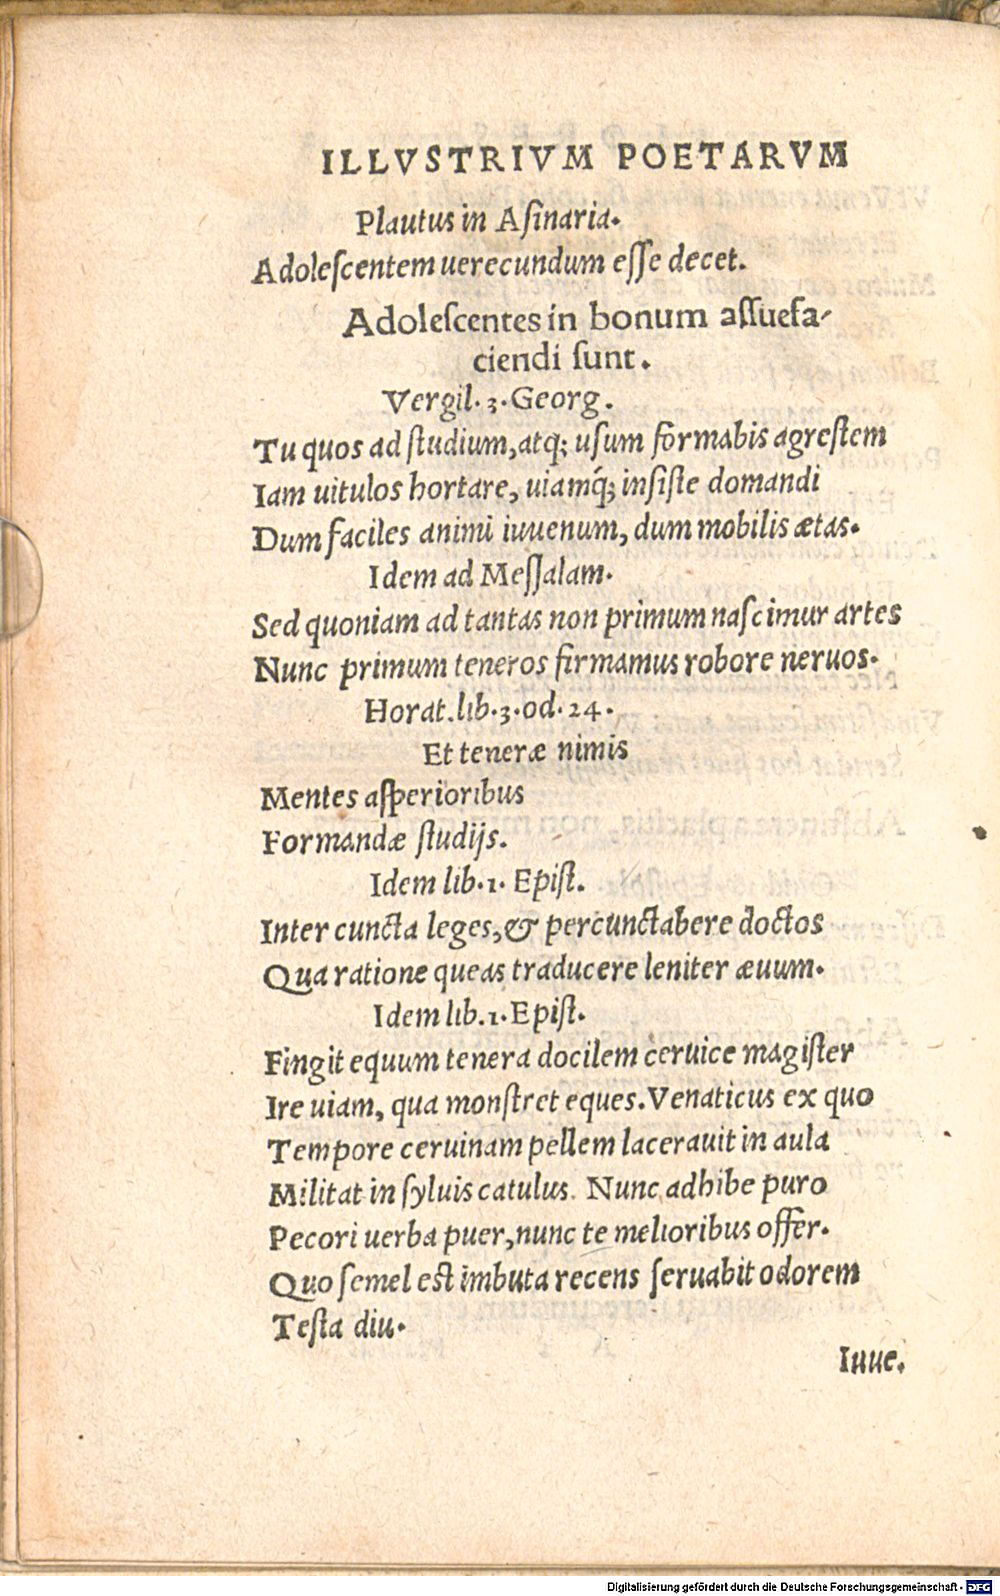 ILLVSTRIVM POETARVM
Plautus in Aſinaria.
Adoleſcentem uerecundum eſſe decet.
Adoleſcentes in bonum aſſuefa-
ciendi ſunt.
Vergil. 3. Georg.
Tu quos ad ſtudium, atq; uſum formabis agreſtem
Iam uitulos hortare, uiamq́; inſiſte domandi
Dum faciles animi iuuenum, dum mobilis ætas.
Idem ad Meſſalam.
Sed quoniam ad tantas non primum naſcimur artes
Nunc primum teneros firmamus robore neruos.
Horat. lib. 3. od. 24.
Et teneræ nimis
Mentes aſperioribus
Formandæ ſtudijs.
Idem lib. 1. Epiſt.
Inter cuncta leges, & percunctabere doctos
Qua ratione queas traducere leniter æuum.
Idem lib. 1. Epiſt.
Fingit equum tenera docilem ceruice magiſter
Ire uiam, qua monſtret eques. Venaticus ex quo
Tempore ceruinam pellem lacerauit in aula
Militat in ſyluis catulus. Nunc adhibe puro
Pecori uerba puer, nunc te melioribus offer.
Quo ſemel eſt imbuta recens ſeruabit odorem
Teſta diu.
Iuue.
Digitalisierung gefördert durch die Deutsche Forschungsgemeinschaft - DFG